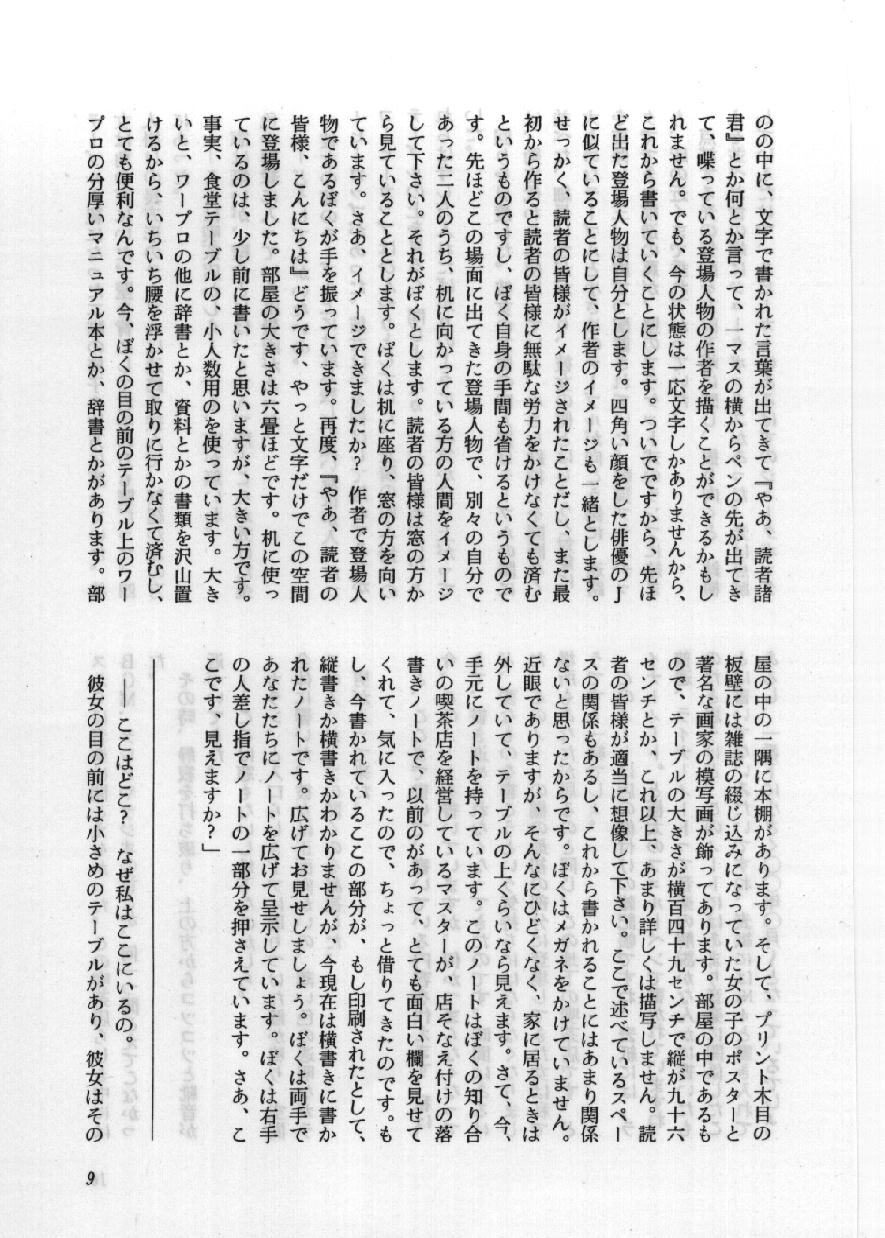 のの中に、文字で書かれた言葉が出てきて『やあ、読者諸
君』とか何とか言って、一マスの横からペンの先が出てき
て、喋っている登場人物の作者を描くことができるかもし
れません。でも、今の状態は一応文字しかありませんから、
これから書いていくことにします。ついでですから、先ほ
ど出た登場人物は自分とします。四角い顔をした俳優のJ
に似ていることにして、作者のイメージも一緒とします。
せっかく、読者の皆様がイメージされたことだし、また最
初から作ると読者の皆様に無駄な労力をかけなくても済む
というものですし、ぼく自身の手間も省けるというもので
す。先ほどこの場面に出てきた登場人物で、別々の自分で
あった二人のうち、机に向かっている方の人間をイメージ
して下さい。それがぼくとします。読者の皆様は窓の方か
ら見ていることとします。ぼくは机に座り、窓の方を向い
ています。さあ、イメージできましたか? 作者で登場人
物であるぼくが手を振っています。再度、『やあ、読者の
皆様、こんにちは』どうです、やっと文字だけでこの空間
に登場しました。部屋の大きさは六畳ほどです。机に使っ
ているのは、少し前に書いたと思いますが、大きい方です。
事実、食堂テーブルの、小人数用のを使っています。大き
いと、ワープロの他に辞書とか、資料とかの書類を沢山置
けるから、いちいち腰を浮かせて取りに行かなくて済むし、
とても便利なんです。今、ぼくの目の前のテーブル上のワー
プロの分厚いマニュアル本とか、辞書とかがあります。部
屋の中の一隅に本棚があります。そして、プリント木目の
板壁には雑誌の綴じ込みになっていた女の子のポスターと
著名な画家の模写画が飾ってあります。部屋の中であるも
ので、テーブルの大きさが横百四十九センチで縦が九十六
センチとか、これ以上、あまり詳しくは描写しません。読
者の皆様が適当に想像して下さい。ここで述べているスペー
スの関係もあるし、これから書かれることにはあまり関係
ないと思ったからです。ぼくはメガネをかけていません。
近眼でありますが、そんなにひどくなく、家に居るときは
外していて、テーブルの上くらいなら見えます。さて、今、
手元にノートを持っています。このノートはぼくの知り合
いの喫茶店を経営しているマスターが、店そなえ付けの落
書きノートで、以前のがあって、とても面白い欄を見せて
くれて、気に入ったので、ちょっと借りてきたのです。も
し、今書かれているここの部分が、もし印刷されたとして、
縦書きか横書きかわかりませんが、今現在は横書きに書か
れたノートです。広げてお見せしましょう。ぼくは両手で
あなたたちにノートを広げて呈示しています。ぼくは右手
の人差し指でノートの一部分を押さえています。さあ、こ
こです、見えますか?」
――ここはどこ? なぜ私はここにいるの。
彼女の目の前には小さめのテーブルがあり、彼女はその
9